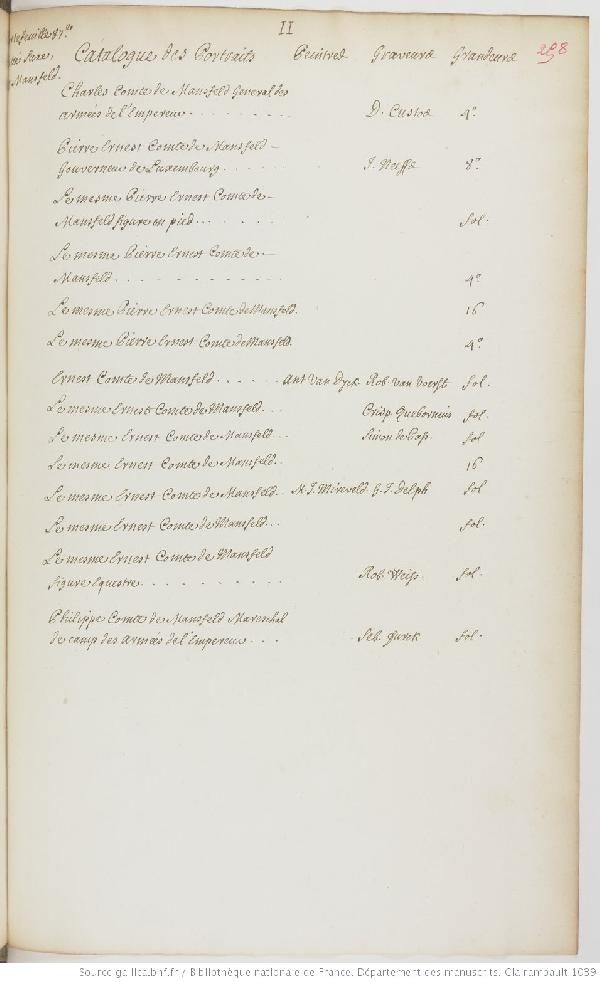 II
298
tefeuille 87.ᵉ
Mansfeld.
Catalogue des Portraits Peintres Graveurs Grandeurs
Charles Comte de Mansfeld General des
armées de l'Empereur . . . . . . . . D. Custos 4.º
Pierre Ernest Comte de Mansfeld
Gouverneur de Luxembourg . . . . . J. Neeffs 8.º
Le mesme Pierre Ernest Comte de
Mansfeld figure en pied . . . . . . fol.
Le mesme Pierre Ernest Comte de
Mansfeld . . . . . . . . . . . 4.º
Le mesme Pierre Ernest Comte de Mansfeld. 16
Le mesme Pierre Ernest Comte de Mansfeld. 4.º
Ernest Comte de Mansfeld . . . . . . Ant Van Dyck Rob. van Voerst fol.
Le mesme Ernest Comte de Mansfeld . . . Crisp. Quebornius fol.
Le mesme Ernest Comte de Mansfeld . . . Simon de Pass. fol
Le mesme Ernest Comte de Mansfeld . . 16
Le mesme Ernest Comte de Mansfeld . . M. J. Mireveld. G. J. Delph fol
Le mesme Ernest Comte de Mansfeld . . . fol.
Le mesme Ernest Comte de Mansfeld
figure Equestre . . . . . . . . . Rob. Weiss. fol.
Philippe Comte de Mansfeld Mareschal
de camp des armées de l'Empereur . . . Seb. Furck fol.
Source gallica.bnf.fr / Bibliothèque nationale de France. Département des manuscrits. Clairambault 1039